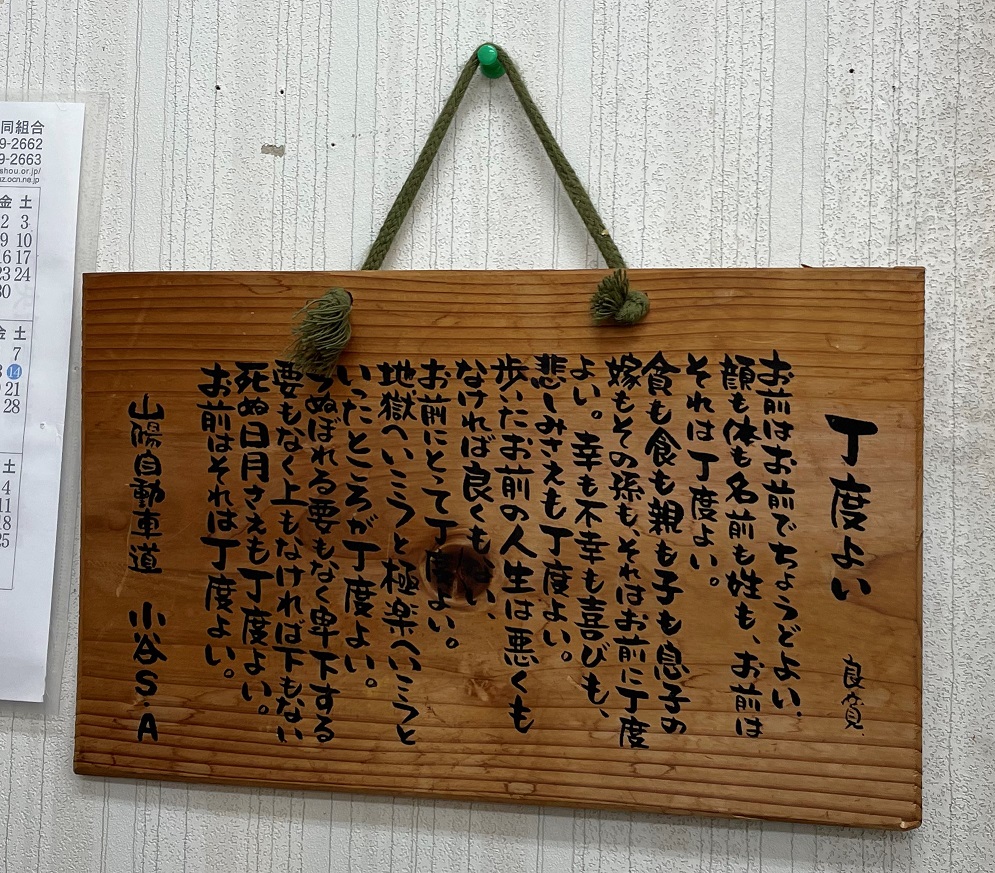 丁度よい
良寛
お前はお前でちょうどよい.
顔も体も名前も姓も、お前は
それは丁度よい。
貧も食も親も子も息子の
嫁もその孫も、それはお前に丁度
よい。幸も不幸も喜びも、
悲しみさえも丁度よい。
歩いたお前の人生は悪くも
なければ良くもない、
お前にとって丁度よい。
地獄へいこうと極楽へいこうと
いったところが丁度よい。
うぬぼれる要もなく卑下する
要もなく上もなければ下もない
死ぬ日月さえも丁度よい。
お前はそれは丁度よい。
山陽自動車道 小谷S.A
同組合
9-2662
9-2663
shou.or.jp/
z.ocn.ne.jp
金 土
2 3
9 10
16 17
23 24
30
金 土
7
14
21
28
土
4
11
18
25